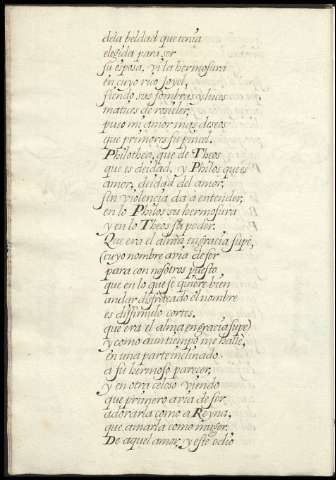 dela beldad que tenia
elegida para ser
su esposa, vi la hermosura
en cuyo rico Joyel,
siendo sus sombras y luces
matices de rosicler
puso mi amor mas deseos
que primores su pincel.
Philotheo, que de Theos
que es deidad, y Philos que es
amor, deidad del amor,
sin violencia da a entender,
en lo Philos su hermosura
y en lo Theos su poder.
Que era el alma en gracia supe,
(cuyo nombre avia de ser
para con nosotros puesto
que en lo que se quiere bien
andar disfrazado el nombre
es disimulo cortes.
que era el alma en gracia supe)
y como a un tiempo me halle,
en una parte inclinado
a su hermoso parecer,
y en otra celoso viendo
que primero avia de ser
adorarla como a Reyna,
que amarla como muger.
De aquel amor, y este odio